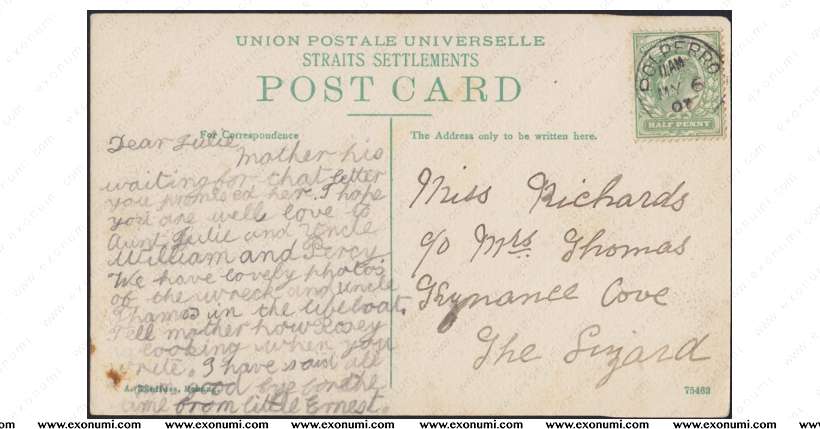 UNION POSTALE UNIVERSELLE
STRAITS SETTLEMENTS
POST CARD
POLPERRO
11AM
MY 6
07
HALF PENNY
For Correspondence
The Address only to be written here.
Dear Julie
Mother his
waiting for that letter
you promised her. I hope
you are well love to
Aunt Julie and Uncle
William and Percy.
We have lovely photos
of the wreck and uncle
Thomas in the lifeboat.
Tell mother how
looking when you
write. I have said all
good bye for the
from little Ernest.
Miss Richards
c/o Mrs. Thomas
Kynance Cove
The Lizard
75462
www.exonumi.com www.exonumi.com www.exonumi.com www.exonumi.com www.exonumi.com www.exonumi.com